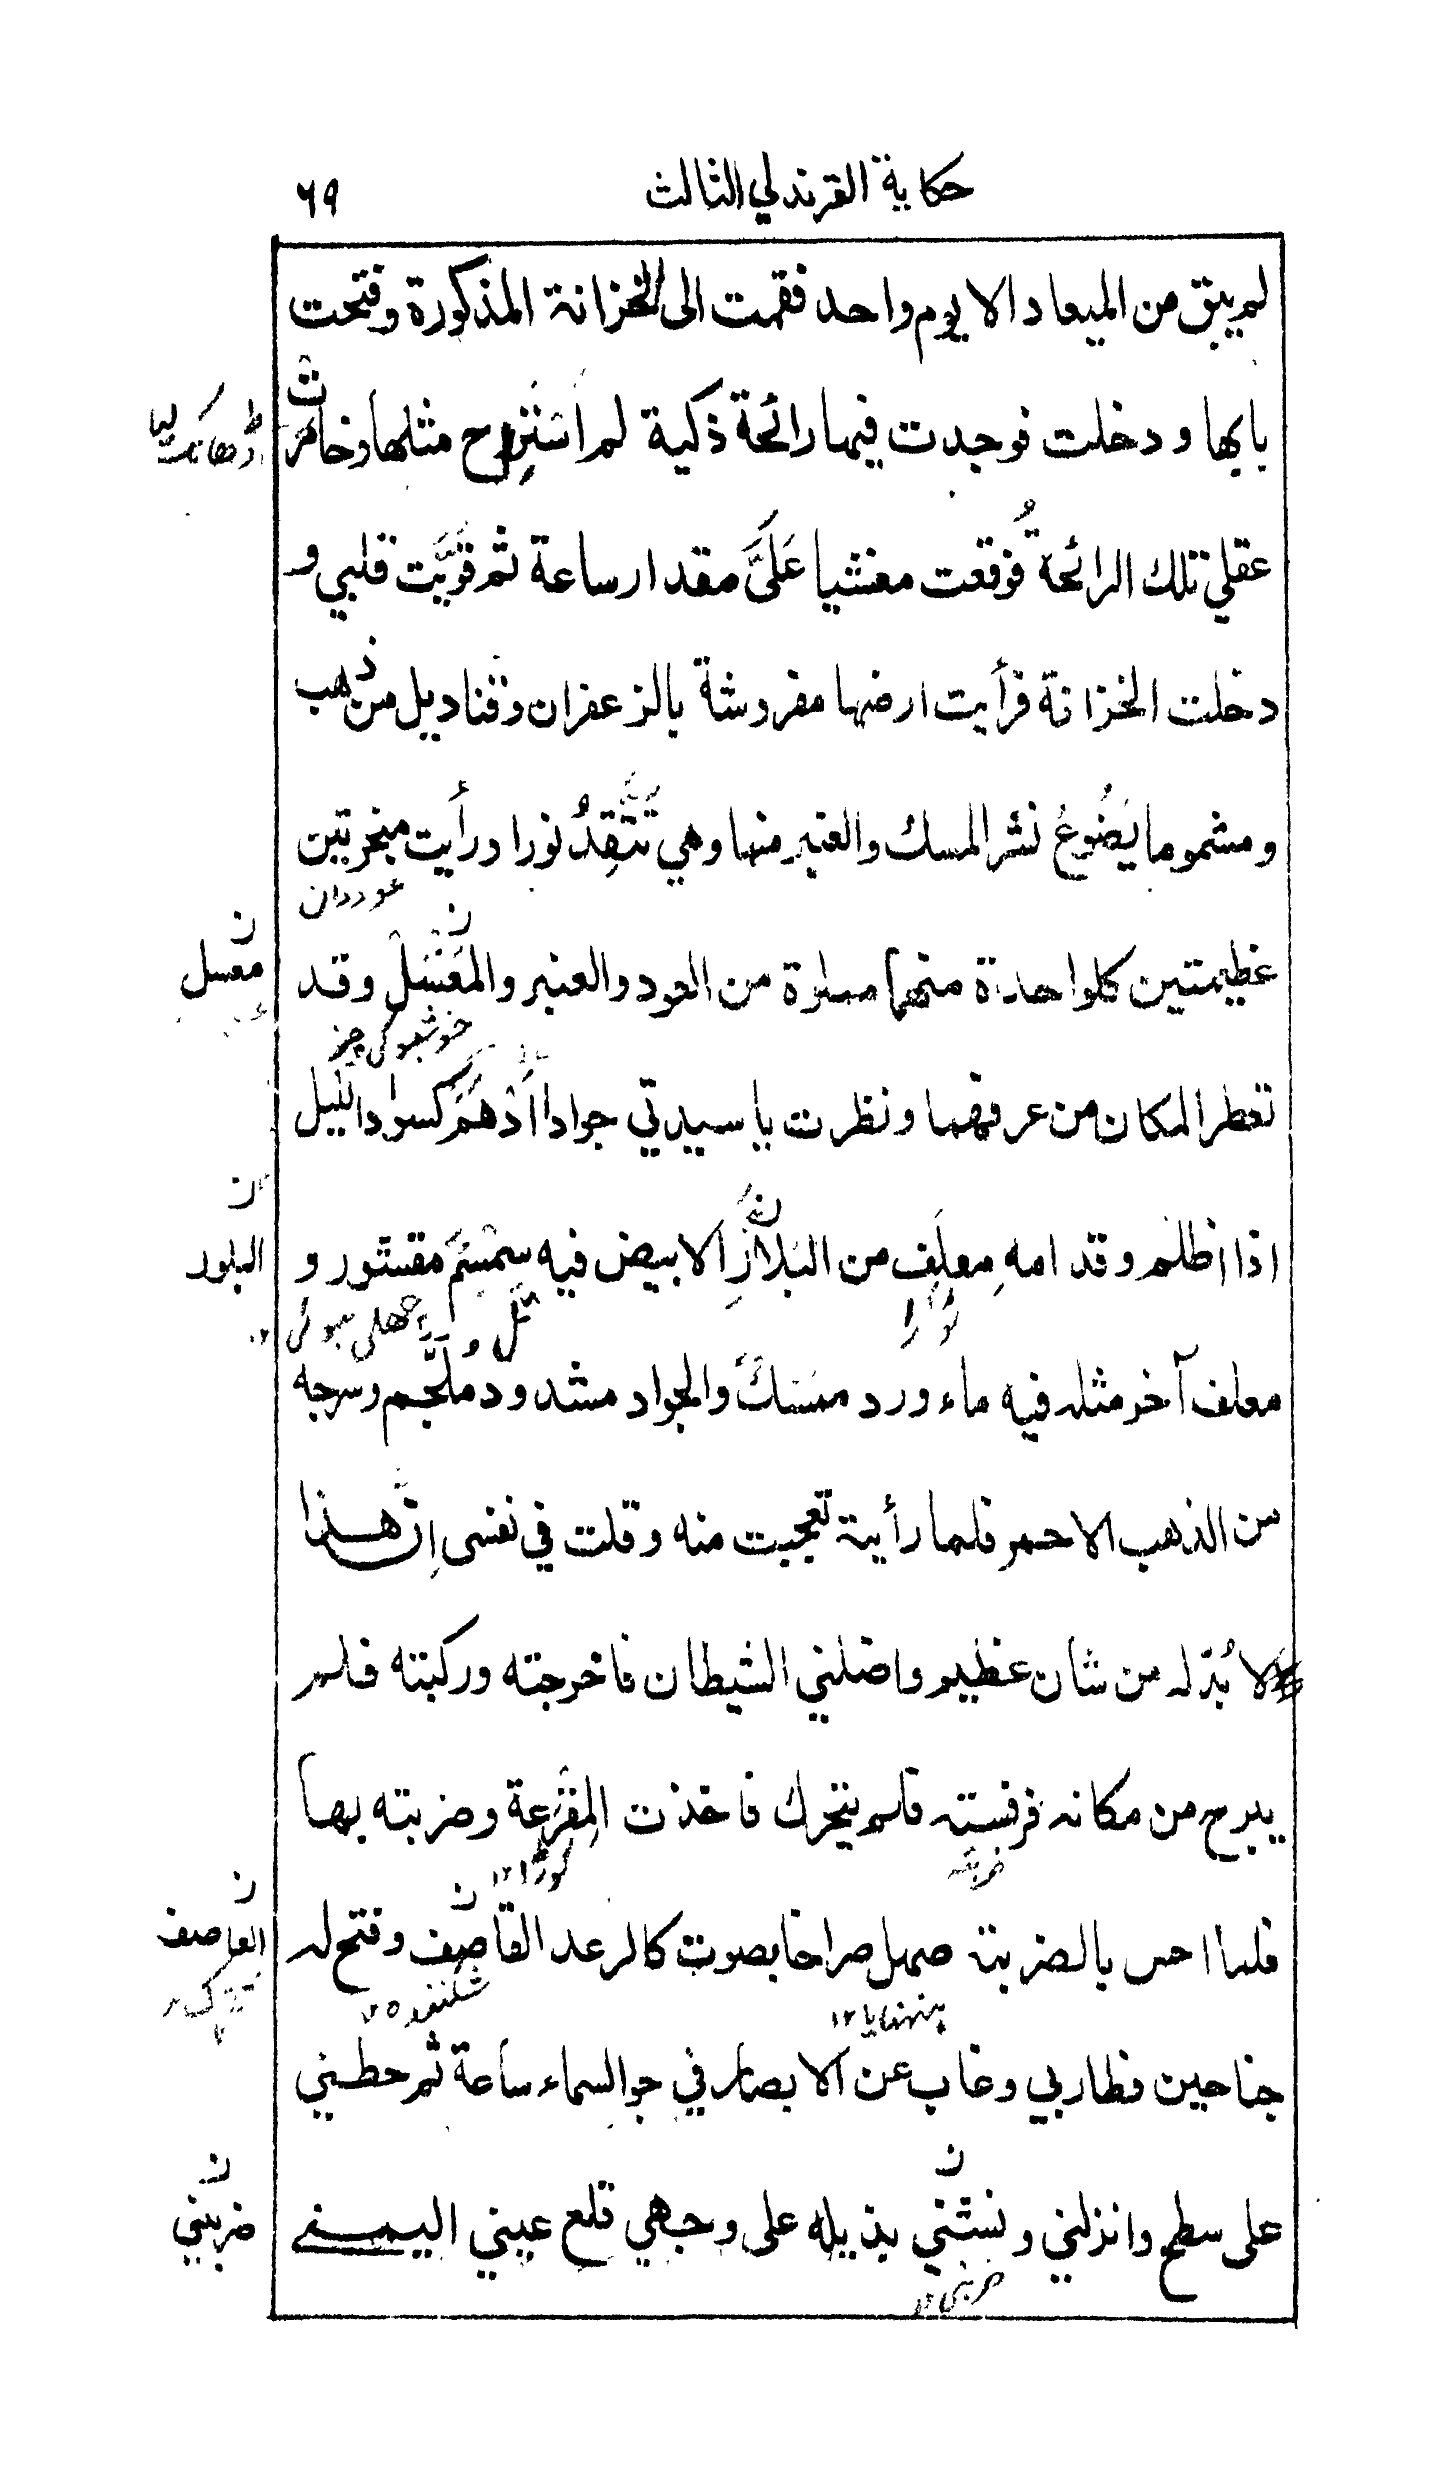 حكاية القرندلي الثالث
٦٩
لم يبق من الميعاد الا يوم واحد فقمت الى الخزانة المذكورة وفتحت
بابها ودخلت فوجدت فيها رائحة ذكية لم استروح مثلها وخامرت
عقلي تلك الرائحةُ فوقعت مغشيا عَلَيَّ مقدار ساعة ثم قوَّيت قلبي و
دخلت الخزانة فرأيت ارضها مفروشة بالزعفران وقناديل من ذهب
ومشموما يَضُوعُ نشر المسك والعنبر منها وهي تَتَّقِدُ نورا ورأيت مبخرتين
عود دان
عظيمتين كلواحدة منهما مملوة من العود والعنبر والمَعَنْسَل وقد
ن
معسل
خوشبو کی چیز
تعطر المكان من عرفهما ونظرت يا سيدتي جوادا أدْهَمَ كسواد الليل
اذا اظلم وقدامه مِعلَف من البَلاَّزِ الابيض فيه سِمْسِم مقشور و
ن
البلور
تل
معلف آخر مثله فيه ماء ورد ممسك والجواد مشدود مُلَجَّم وسرجه
من الذهب الاحمر فلما رأيته تعجبت منه وقلت في نفسى اِنَّ هذا
لا بُدّ له من شان عظيم واضلني الشيطان فاخرجته وركبته فلم
يبرح من مكانه فرفسته فلم يتحرك فاخذت المِقْرَعة وضربته بها
کوڑا ١٢
فلما احس بالضربة صهل صراخا بصوت كالرعد القاصِف وفتح له
ن
العاصف
شکننده
ہنہنایا ١٢
جناحين فطار بي وغاب عن الابصار في جو السماء ساعة ثم حطني
على سطح وانزلني ونشّني بذيله على وجهي قلع عيني اليمنے
ن
ضربني
ضربنی ١٢